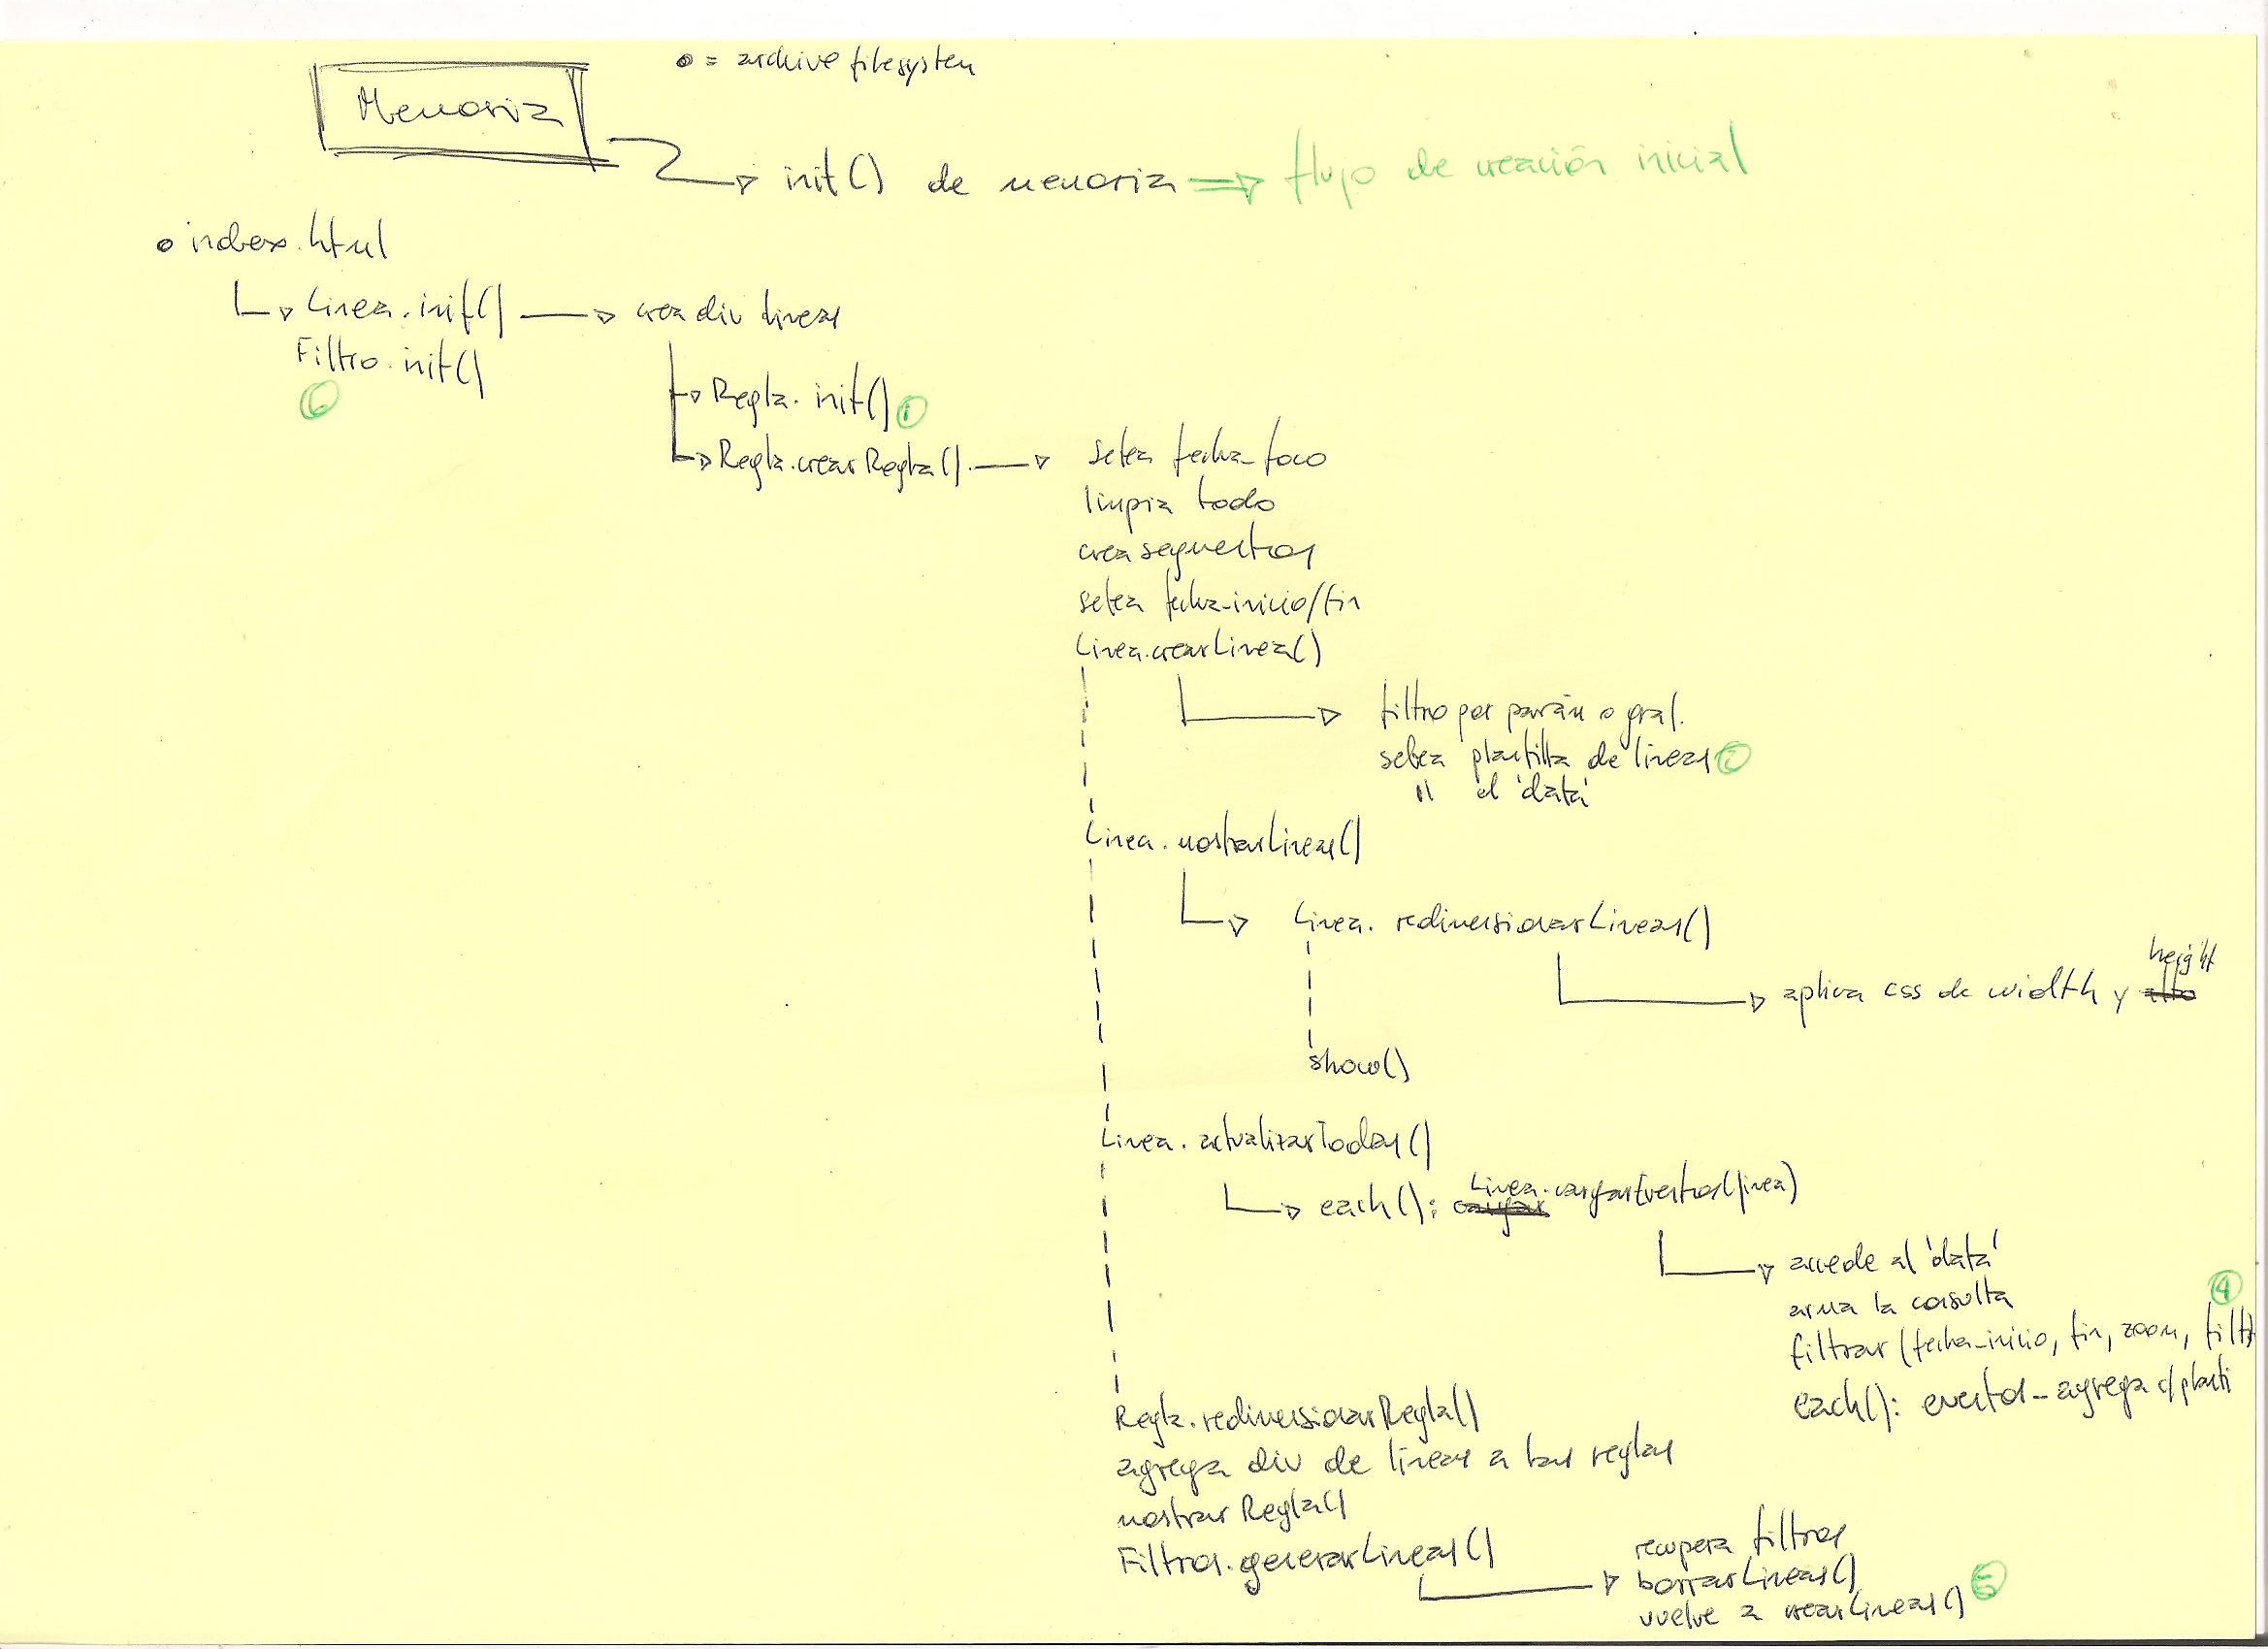 = archivo filesystem
Memoria
init() de memoria
flujo de creación inicial
index.html
Linea.init()
crea div lineas
Filtro.init()
6
Regla.init() 1
Regla.crearRegla()
setea fecha_foco
limpia todo
crea segmentos
setea fecha_inicio/fin
Linea.crearLinea()
filtro por parám o gral.
setea plantilla de lineas 2
" el 'data'
Linea.mostrarLineas()
Linea.redimensionarLineas()
height
aplica css de width y alto
show()
Linea.actualizarTodas()
each(): cargar Linea.cargarEventos(linea)
accede al 'data'
arma la consulta
4
filtrar (fecha_inicio, fin, zoom, filt
each(): eventos_agrega c/planti
Regla.redimensionarRegla()
agrega div de lineas a las reglas
mostrarRegla()
Filtros.generarLineas()
recupera filtros
borrarLineas() 5
vuelve a crearLineas()